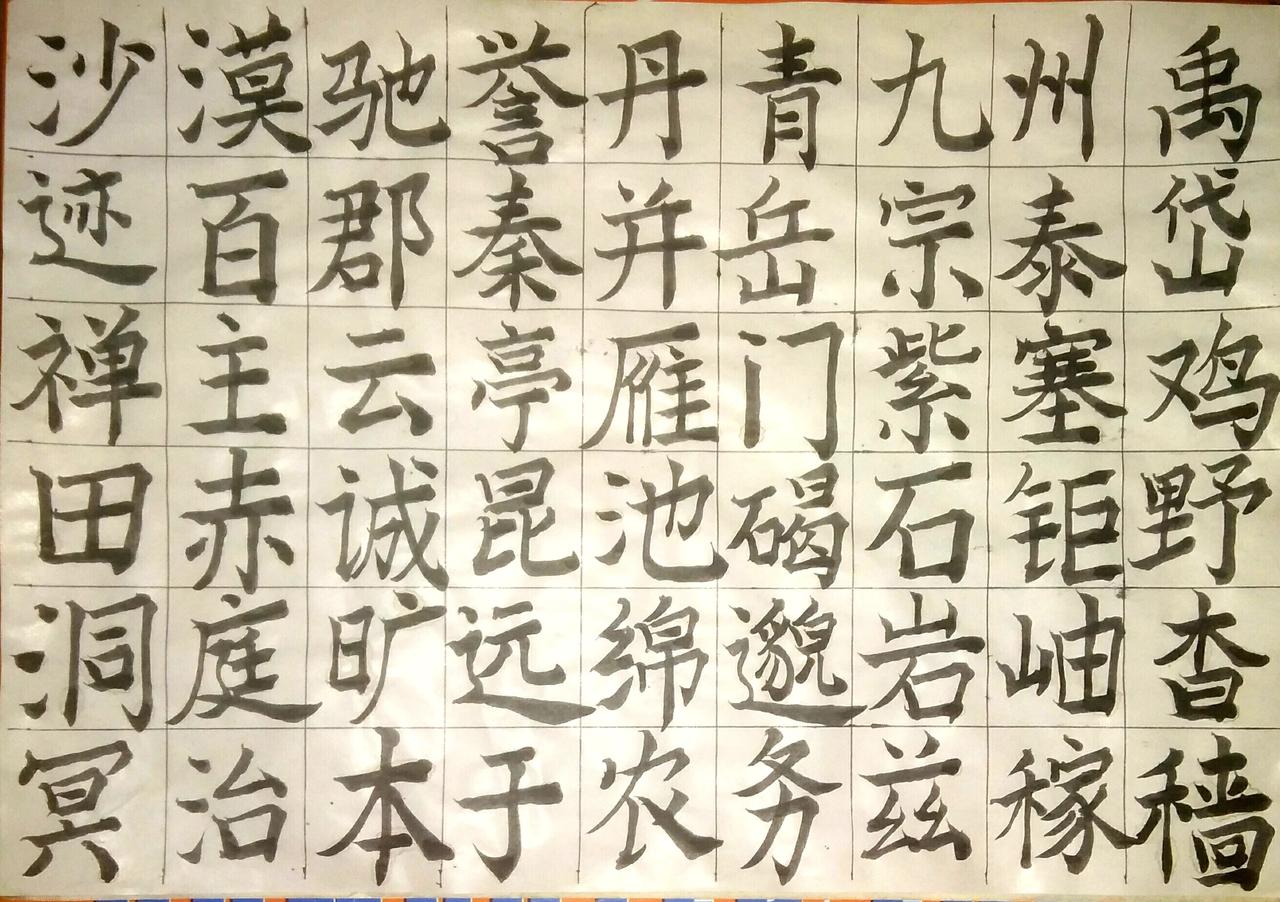 沙漠驰誉丹青九州禹
迹百郡秦并岳宗泰岱
禅主云亭雁门紫塞鸡
田赤诚昆池碣石钜野
洞庭旷远绵邈岩岫杳
冥治本于农务兹稼穑